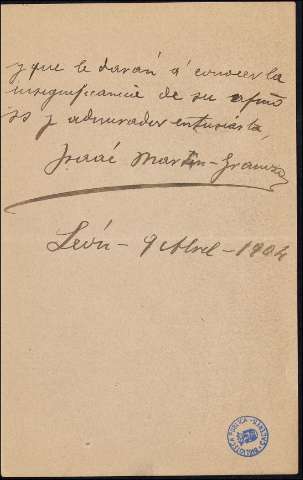 y que le darán a' conocer la
insignificancia de su afmo
ss y admirador entusiasta,
Isaac Martín-Granizo
León - 9 Abril - 1904
BIBLIOTECA PUBLICA